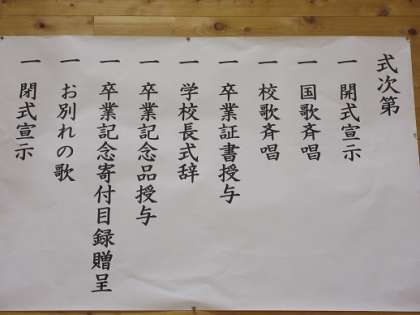 式次第
一 開式宣示
一 国歌斉唱
一 校歌斉唱
一 卒業証書授与
一 学校長式辞
一 卒業記念品授与
一 卒業記念寄付目録贈呈
一 お別れの歌
一 閉式宣示